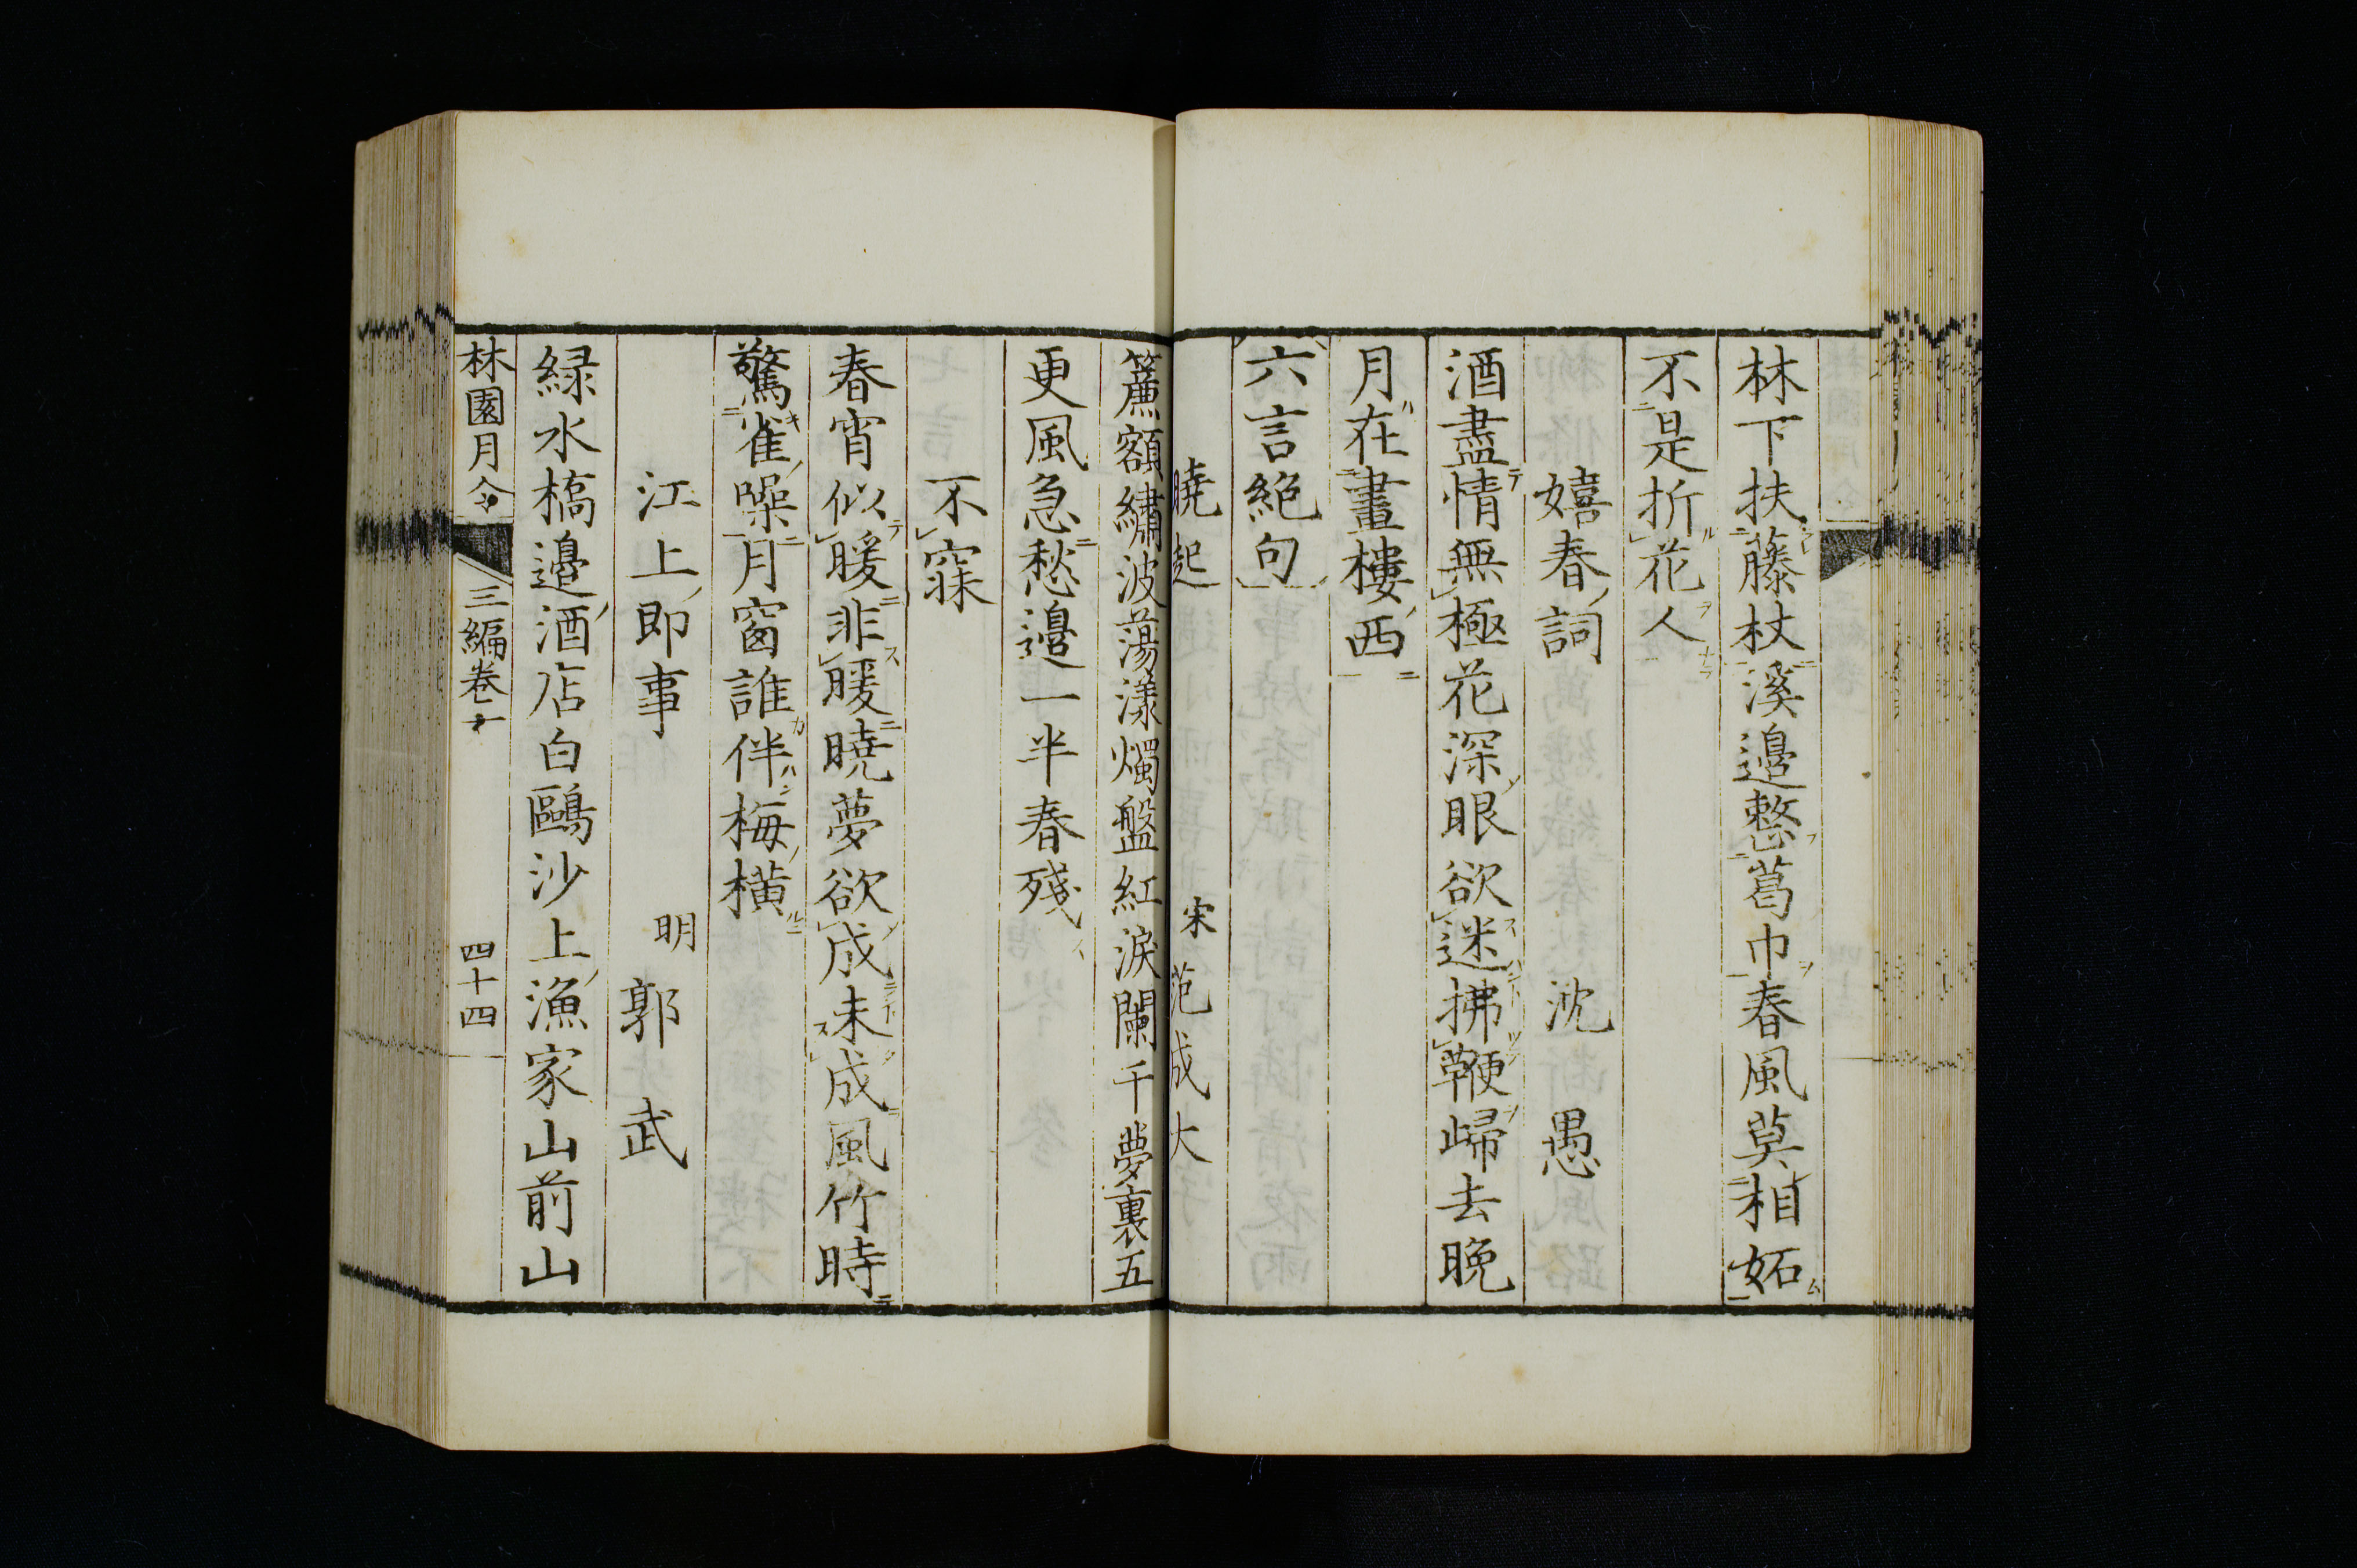 林下扶藤杖溪邉整葛巾春風莫相妬
不是折花人
嬉春詞 沈愚
酒盡情無極花深眼欲迷拂鞭歸去晩
月在畫樓西
六言絶句
曉起 宋 范成大
簾額繡波蕩漾燭盤紅淚闌干夢裏五
更風急愁邉一半春殘
不寐
春宵似暖非暖曉夢欲成未成風竹時
驚雀噪月窗誰伴梅橫
江上即事 明 郭武
緑水橋邉酒店白鷗沙上漁家山前山
林園月令 三編卷十 四十四